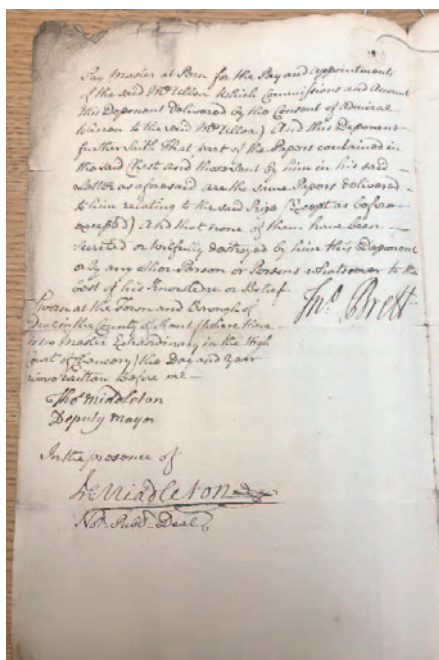 Pay Master at Bern for the Pay and Appointments
of the said Mr. Ullon Which Commissions and Account
this Deponent delivered by the Consent of Admiral
Warren to the said Mr. Ullon) And this Deponent
further saith That part of the Papers contained in
the said Chest and those sent by him in his said
Letter as aforesaid are the same Papers delivered
to him relating to the said Prize (Except as before
excepted) And that none of them have been
Secreted or wilfully destroyed by him this Deponent
or by any other Person or Persons whatsoever to the
best of his Knowledge or Belief
Jno. Brett
Sworn at the Town and Borough of
Deal in the County of Kent (there being
no Master Extraordinary in the High
Court of Chancery) the Day and Year
above written Before me
Tho. Middleton
Deputy Mayor
In the presence of
Middleton
Not. Pub. Deal